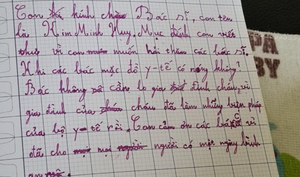 Con kính chào Bác sĩ, con tên
là Kim Minh Huy. Mục đích con viết
thư vì con muốn hỏi thăm các bác sĩ,
Khi các bác mặc đồ y-tế có nóng không,
Bác không cần lo gia đình cháu vì
gia đình của cháu đã làm những biện pháp
của bộ y-tế rồi. Con cảm ơn các bác sĩ vì
đã cho mọi người có một ngày bình
an
PA
BY